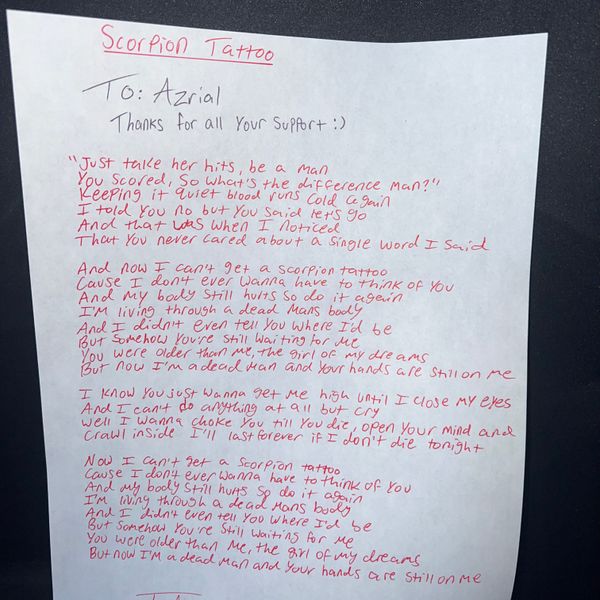 Scorpion Tattoo
To: Azrial
Thanks for all Your Support :)
"Just take her hits, be a man
You scored, so what's the difference man?"
Keeping it quiet blood runs cold again
I told You no but You said let's go
And that was when I noticed
That You never cared about a single word I said
And now I can't get a scorpion tattoo
Cause I don't ever wanna have to think of You
And my body still hurts so do it again
I'm living through a dead mans body
And I didn't even tell You where I'd be
But somehow You're still waiting for me
You were older than me, the girl of my dreams
But now I'm a dead man and your hands are still on me
I know You just wanna get me high until I close my eyes
And I can't do anything at all but cry
Well I wanna choke You till You die, open Your mind and
Crawl inside I'll last forever if I don't die tonight
Now I can't get a scorpion tattoo
Cause I don't ever wanna have to think of You
And my body still hurts so do it again
I'm living through a dead mans body
And I didn't even tell You where I'd be
But somehow You're still waiting for me
You were older than me, the girl of my dreams
But now I'm a dead man and Your hands are still on me